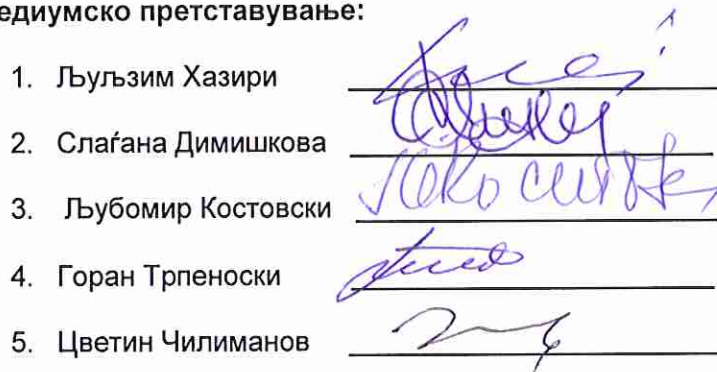 едиумско претставување:
1. Љуљзим Хазири
2. Слаѓана Димишкова
3. Љубомир Костовски
4. Горан Трпеноски
5. Цветин Чилиманов